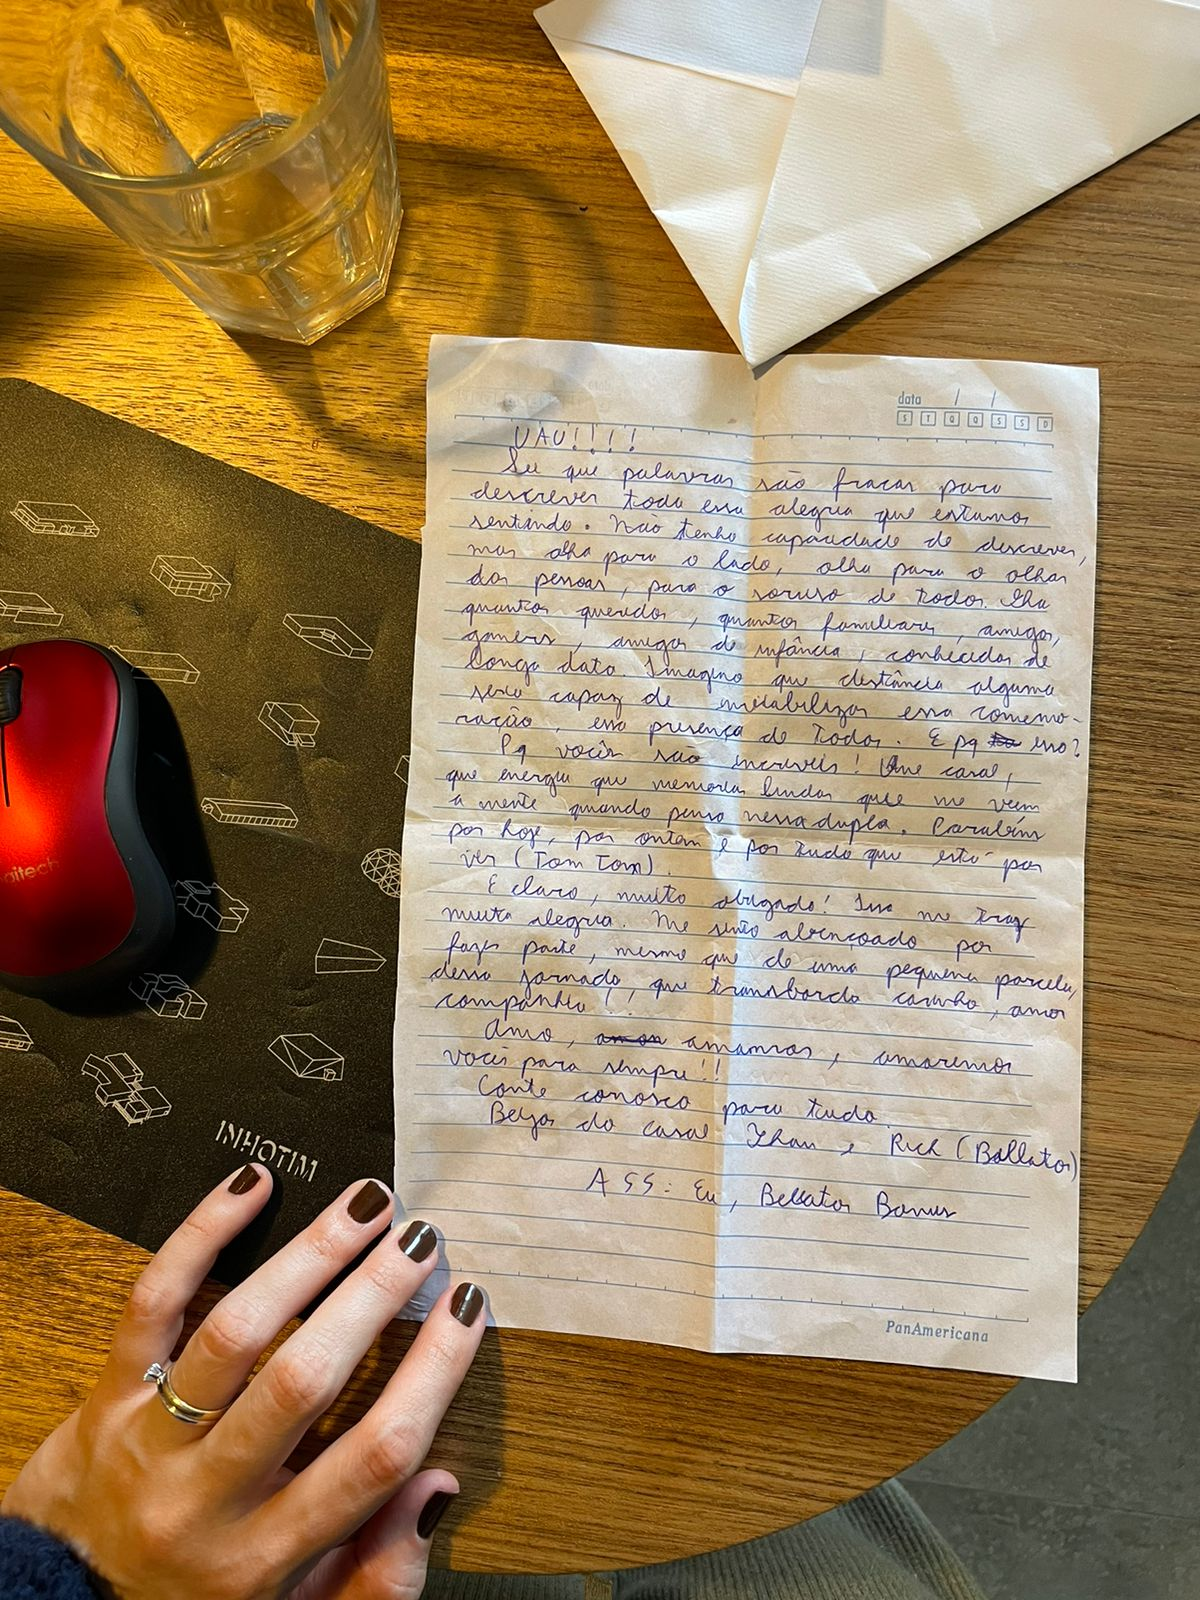 data / /
S T Q Q S S D
UAU!!!!
Sei que palavras são fracas para
descrever toda essa alegria que estamos
sentindo. Não tenho capacidade de descrever,
mas olha para o lado, olha para o olhar
das pessoas, para o sorriso de todos. Olha
quantos queridos, quantos familiares, amigos,
gamers, amigos de infância, conhecidos de
longa data. Imagino que distância alguma
seria capaz de inviabilizar essa comemo-
ração, essa presença de todos. E pq isso?
Pq vocês são incríveis! Que casal,
que energia que memórias lindas que me vem
a mente quando penso nessa dupla. Parabéns
por hoje, por ontem e por tudo que está por
vir (Tom Tom).
E claro, muito obrigado! Isso me traz
muita alegria. Me sinto abençoado por
fazer parte, mesmo que de uma pequena parcela,
dessa jornada, que transborda carinho, amor
companhia!!
Amo, amamos, amaremos
vocês para sempre!!
Conte conosco para tudo.
Beijos do casal Jhan e Rich (Bellator)
ASS: Eu, Bellator Bonus
PanAmericana
INHOTIM